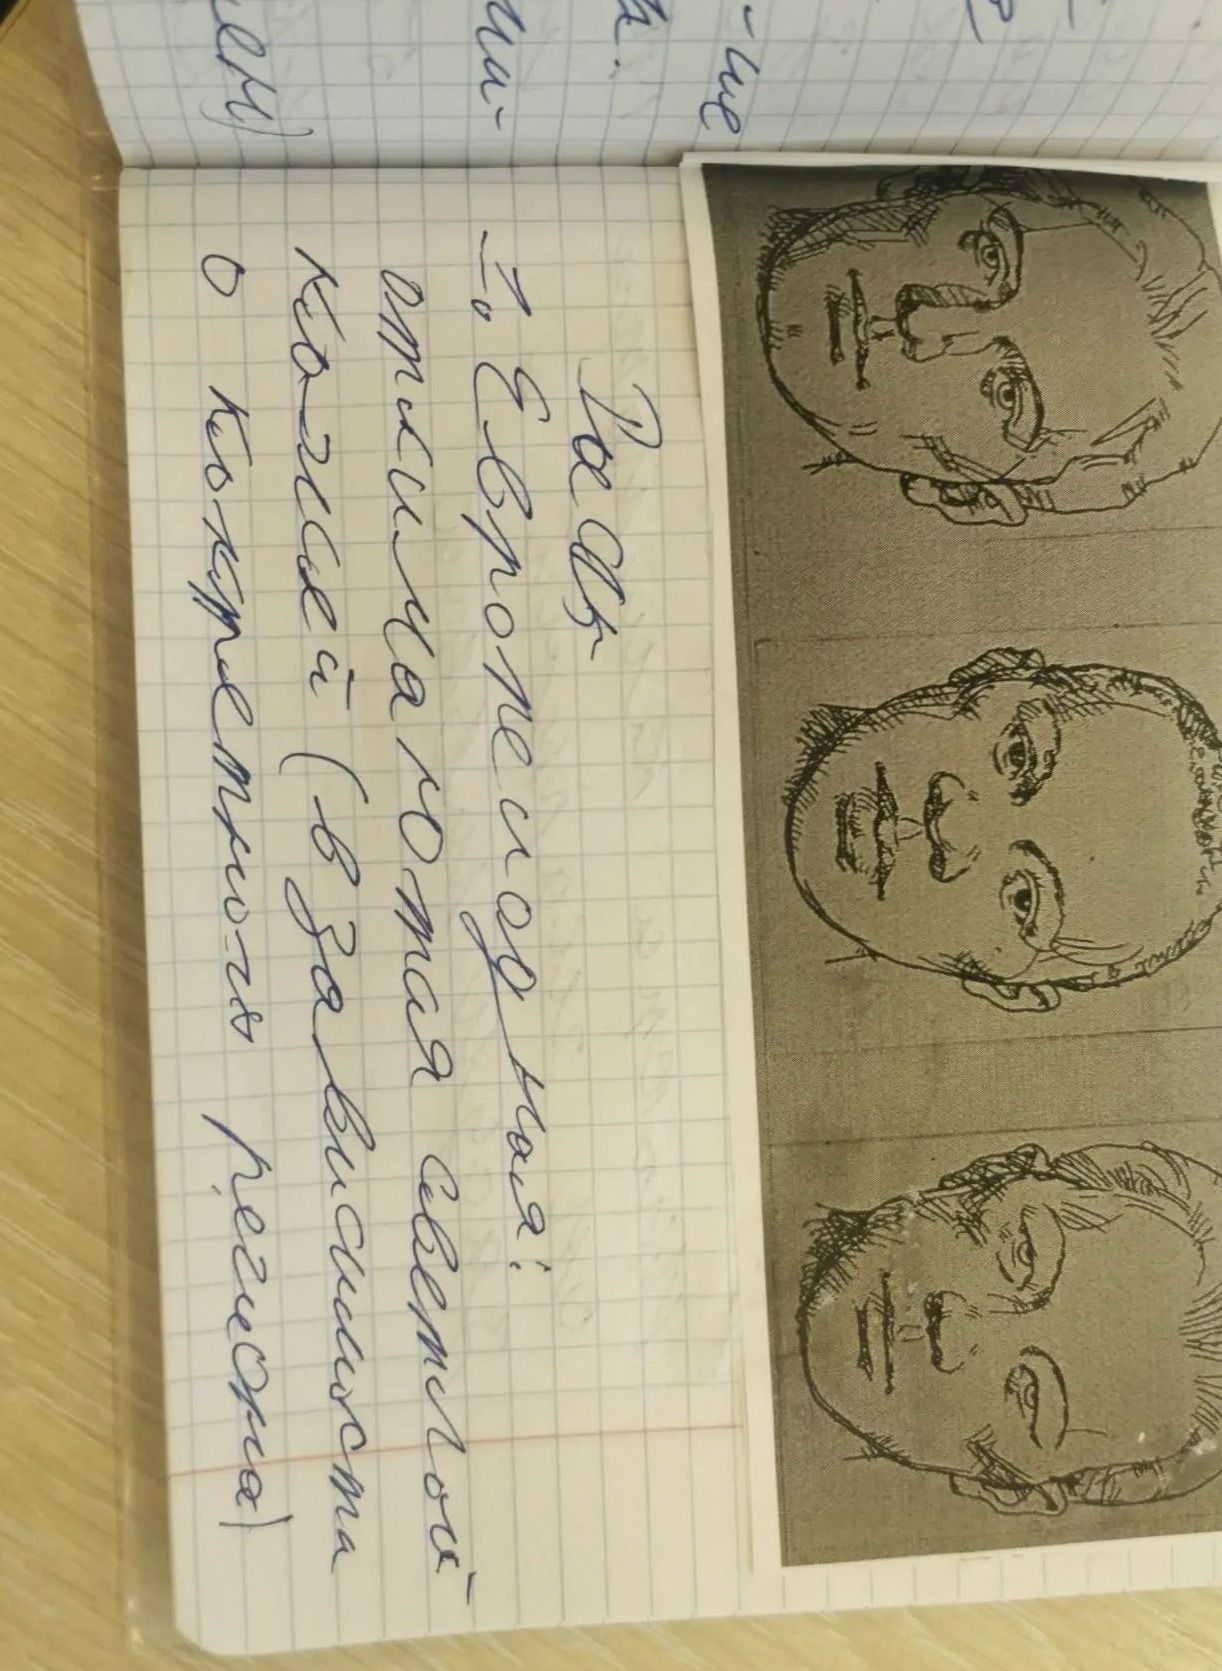 Расы
1. Европеоидная:
отличаются светлой
кожей (в зависимости
о конкретного региона)
-ше
чи-